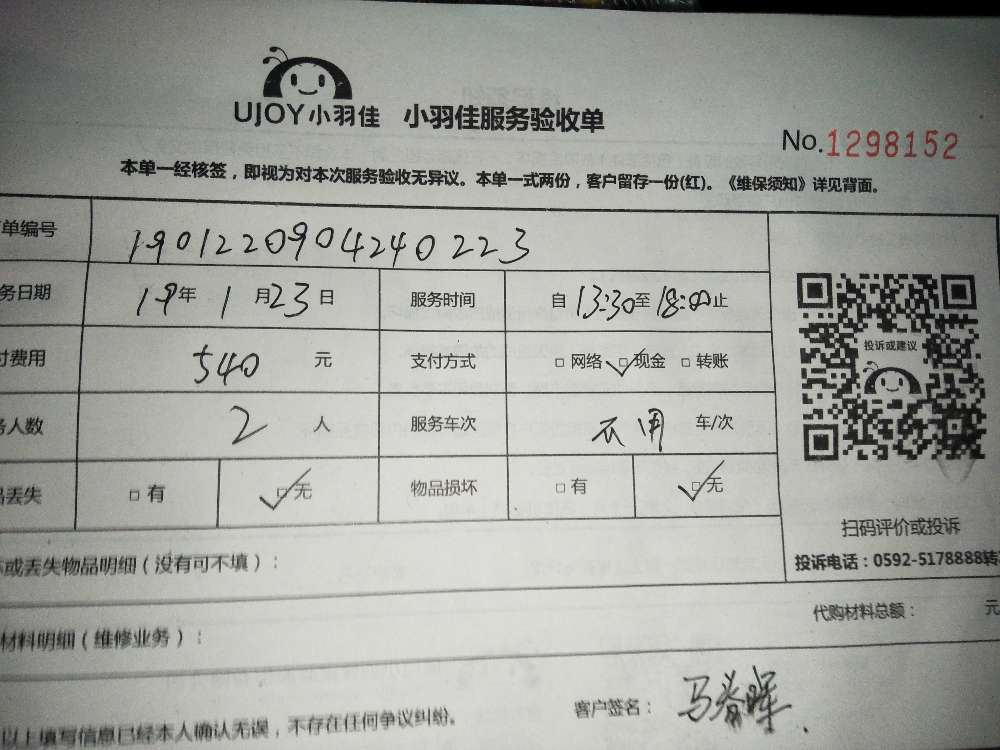 UJOY小羽佳 小羽佳服务验收单
No.1298152
本单一经核签，即视为对本次服务验收无异议。本单一式两份，客户留存一份(红)。《维保须知》详见背面。
单编号 190122090424022 3
务日期 19年 1月23日 服务时间 自13:30至18:00止
付费用 540 元 支付方式 □网络 ☑现金 □转账
务人数 2 人 服务车次 不用 车/次
品丢失 □有 ☑无 物品损坏 □有 ☑无
投诉或建议
扫码评价或投诉
投诉电话：0592-5178888转
坏或丢失物品明细（没有可不填）：
代购材料总额： 元
材料明细（维修业务）：
以上填写信息已经本人确认无误，不存在任何争议纠纷。 客户签名：马春晖